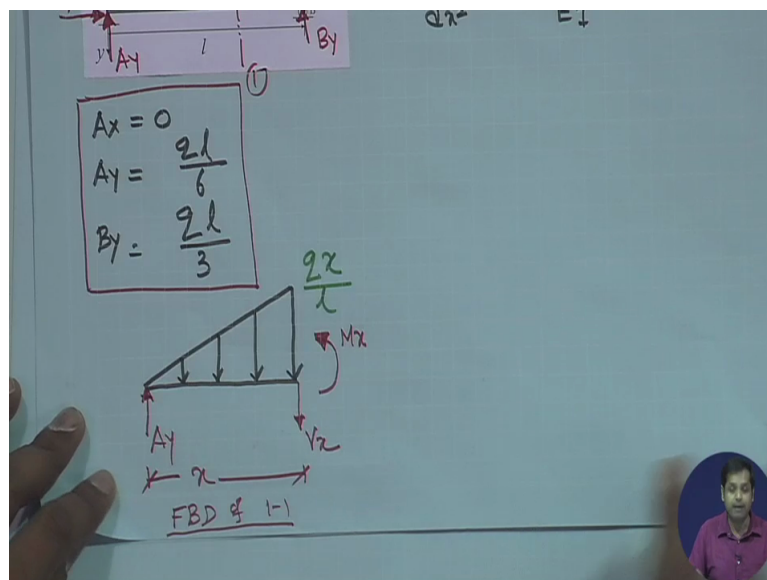 Ay l By
1
Ax = 0
Ay = ql/6
By = ql/3
qx/l
Mx
Ay Vx
x
FBD of 1-1